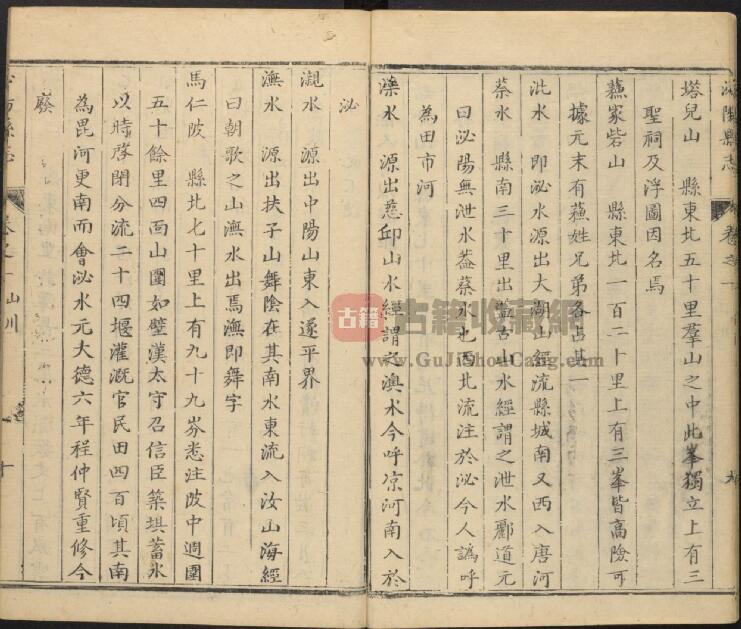 泌陽縣志
卷之一
九
塔兒山 縣東北五十里羣山之中此峯獨立上有三
聖祠及浮圖因名焉
蘓家砦山 縣東北一百二十里上有三峯皆高險可
據元末有蘓姓兄弟各占其一
沘水 即泌水源出大湖山經流縣城南又西入唐河
蔡水 縣南三十里出盤古山水經謂之泄水酈道元
曰泌陽無泄水葢蔡水也西北流注於泌今人譌呼
為田市河
濜水 源出慈邱山水經謂之澳水今呼凉河南入於
泌
瀙水 源出中陽山東入遂平界
潕水 源出扶子山舞陰在其南水東流入汝山海經
曰朝歌之山潕水出焉潕即舞字
馬仁陂 縣北七十里上有九十九岔悉注陂中週圍
五十餘里四面山圍如壁漢太守召信臣築埧蓄水
以時啓閉分流二十四堰灌溉官民田四百頃其南
為毘河更南而會泌水元大德六年程仲賢重修今
廢
泌陽縣志
卷之一山川
十
古籍 古籍收藏網
www.GuJiShouCang.com